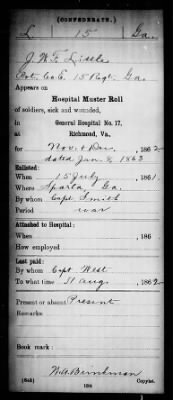 (CONFEDERATE.)
L 15 Ga.
J. W. F. Little
Pvt. Co. E. 15 Regt. Ga.
Appears on
Hospital Muster Roll
of soldiers, sick and wounded,
in General Hospital No. 17,
at Richmond, Va.,
for Nov. & Dec., 1862
dated Jan. 8, 1863
Enlisted:
When 15 July, 1861.
Where Sparta, Ga.
By whom Capt Smith
Period war
Attached to Hospital:
When, 186
How employed
Last paid:
By whom Capt West
To what time 31 Aug., 1862.
Present or absent Present
Remarks:
Book mark:
(646)
Copyist.